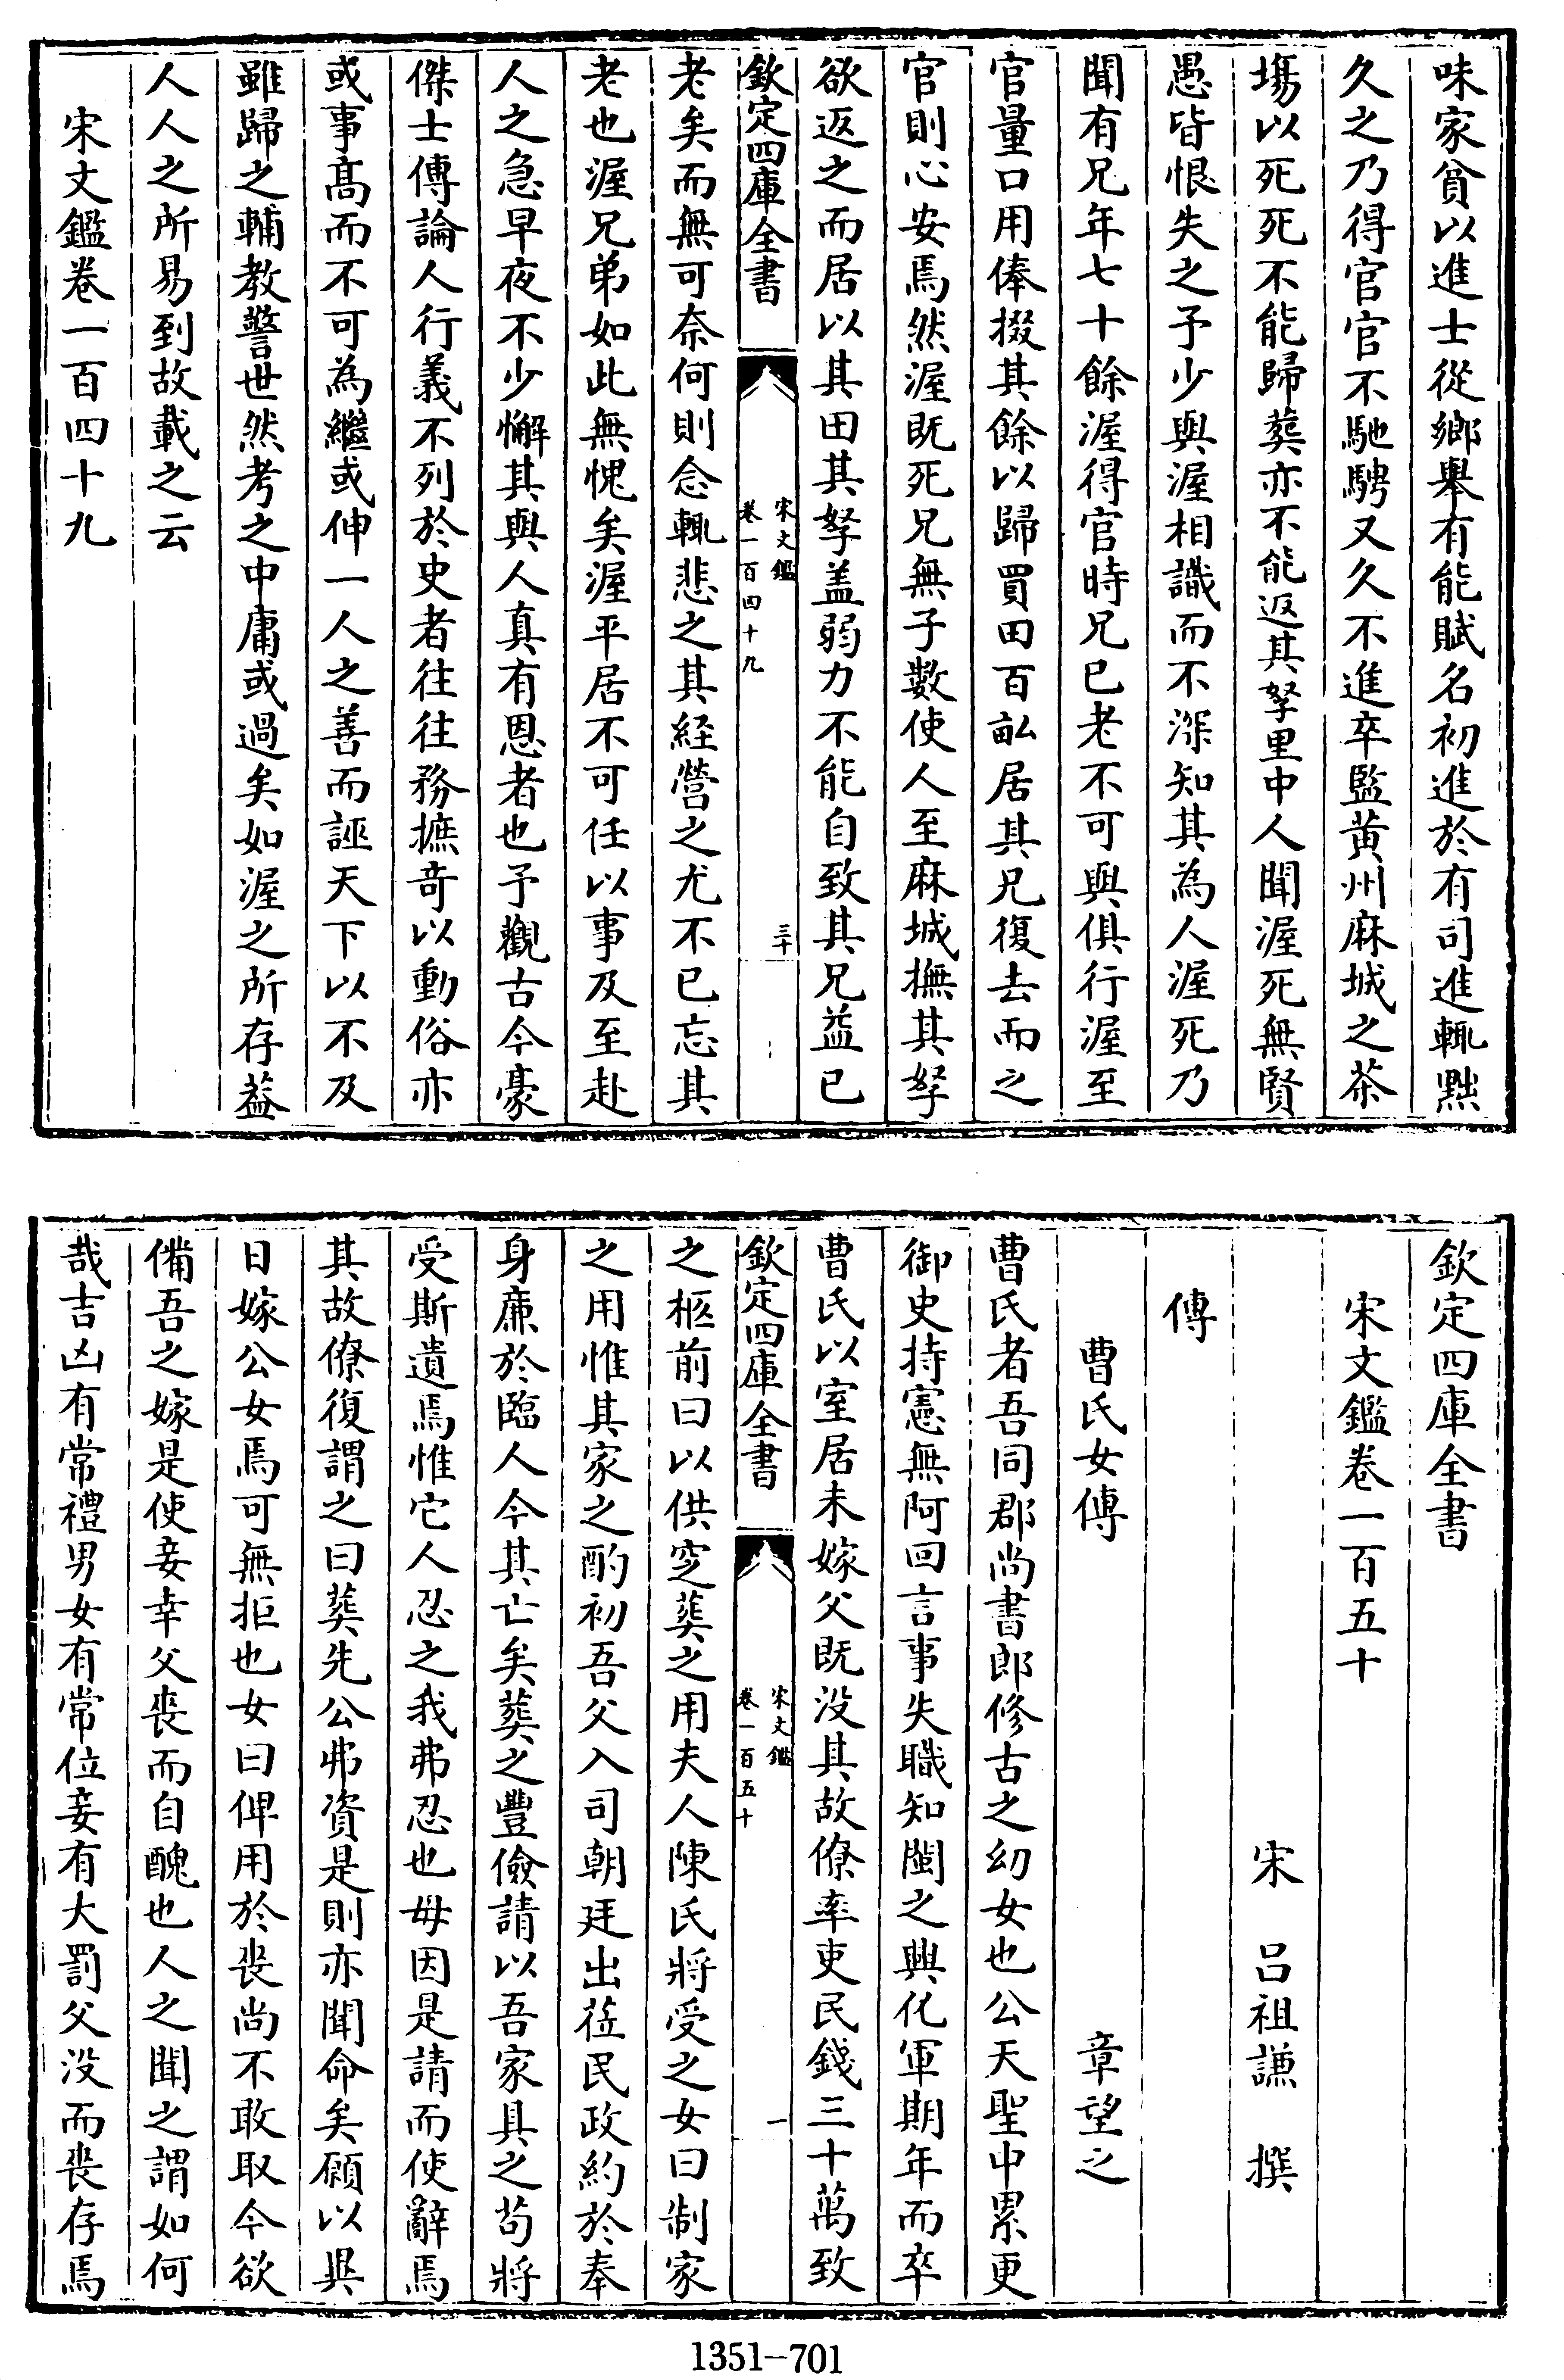 味家貧以進士從鄉舉有能賦名初進於有司進輒㸃
久之乃得官官不馳騁又久不進卒監黄州麻城之茶
塲以死死不能歸葬亦不能返其孥里中人聞渥死無賢
愚皆恨失之予少與渥相識而不深知其為人渥死乃
聞有兄年七十餘渥得官時兄已老不可與俱行渥至
官量口用俸掇其餘以歸買田百畝居其兄復去而之
官則心安焉然渥既死兄無子數使人至麻城撫其孥
欲返之而居以其田其孥盖弱力不能自致其兄益已
欽定四庫全書
宋文鑑
卷一百四十九
三十
老矣而無可奈何則念輒悲之其經營之尤不已忘其
老也渥兄弟如此無愧矣渥平居不可任以事及至赴
人之急早夜不少懈其與人真有恩者也予觀古今豪
傑士傳論人行義不列於史者往往務摭奇以動俗亦
或事髙而不可為繼或伸一人之善而誣天下以不及
雖歸之輔教警世然考之中庸或過矣如渥之所存葢
人人之所易到故載之云
宋文鑑卷一百四十九
欽定四庫全書
宋文鑑卷一百五十
宋 吕祖謙 撰
傳
曹氏女傳 章望之
曹氏者吾同郡尚書郎修古之幼女也公天聖中累更
御史持憲無阿回言事失職知閩之興化軍期年而卒
曹氏以室居未嫁父既没其故僚率吏民錢三十萬致
欽定四庫全書
宋文鑑
卷一百五十
一
之柩前曰以供窆葬之用夫人陳氏將受之女曰制家
之用惟其家之酌初吾父入司朝廷出莅民政約於奉
身廉於臨人今其亡矣葬之豐儉請以吾家具之茍將
受斯遺焉惟它人忍之我弗忍也毋因是請而使辭焉
其故僚復謂之曰葬先公弗資是則亦聞命矣願以異
日嫁公女焉可無拒也女曰俾用於喪尚不敢取今欲
備吾之嫁是使妾幸父喪而自醜也人之聞之謂如何
哉吉凶有常禮男女有常位妾有大罰父没而喪存焉
1351-701